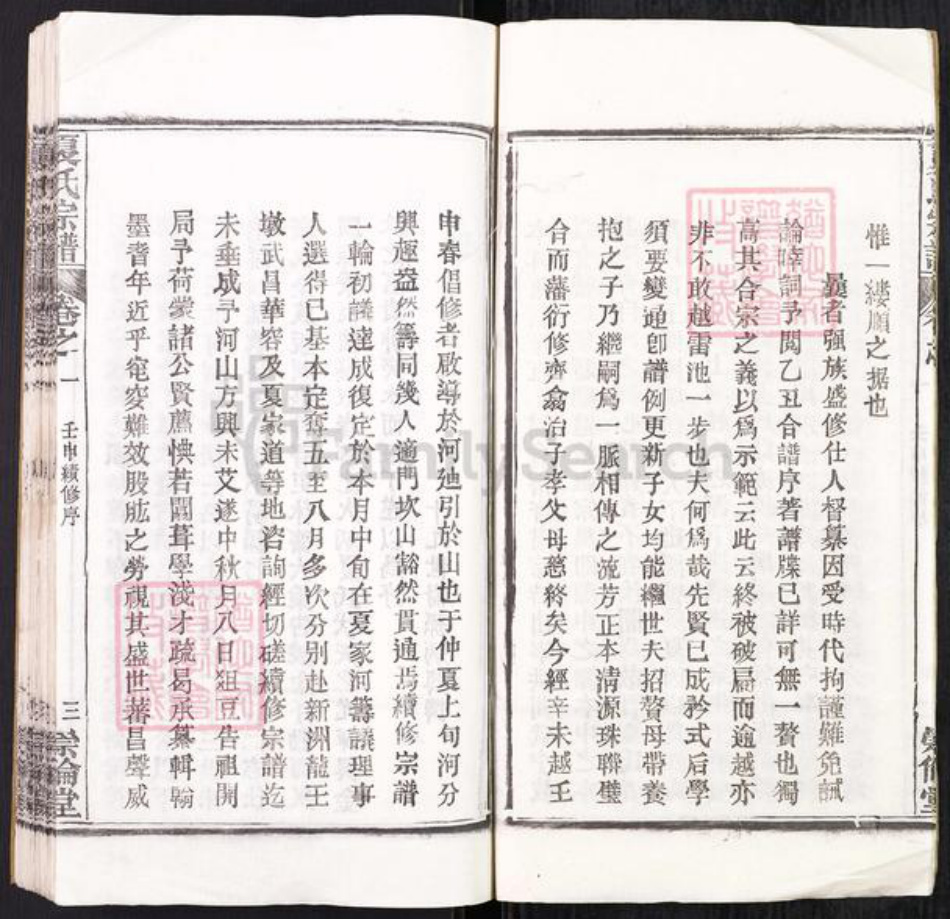 惟一縷順之据也
曩者强族盛修仕人督纂因受時代拘謹難免諴
論啐詞予閱乙丑合譜序著譜牒已詳可無一贅也獨
高其合宗之義以爲示範云此云終被破扃而逾越亦
非不敢越雷池一步也夫何爲哉先賢已成矜式后學
須要變通卽譜例更新子女均能繼世夫招贅母帶養
抱之子乃繼嗣爲一脈相傳之流芳正本清源珠聯璧
合而藩衍修齊翕治子孝父母慈終矣今經辛未越壬
申春倡修者啟導於河迪引於山也于仲夏上旬河分
興趣益然籌同幾人適門坎山豁然貫通焉續修宗譜
一輪初議達成復定於本月中旬在夏家河籌議理事
人選得已基本定奪五至八月多次分別赴新洲龍王
墩武昌華容及夏家道等地咨詢經切磋續修宗譜迄
未垂成予河山方興未艾遂中秋月八日俎豆告祖開
局予荷蒙諸公賢薦愧若闒茸學淺才疏曷承纂輯翰
墨耆年近乎窀穸難效股肱之勞視其盛世蕃昌聲威
氏宗譜
卷之一
壬申續修序
三
崇倫堂
FamilySearch